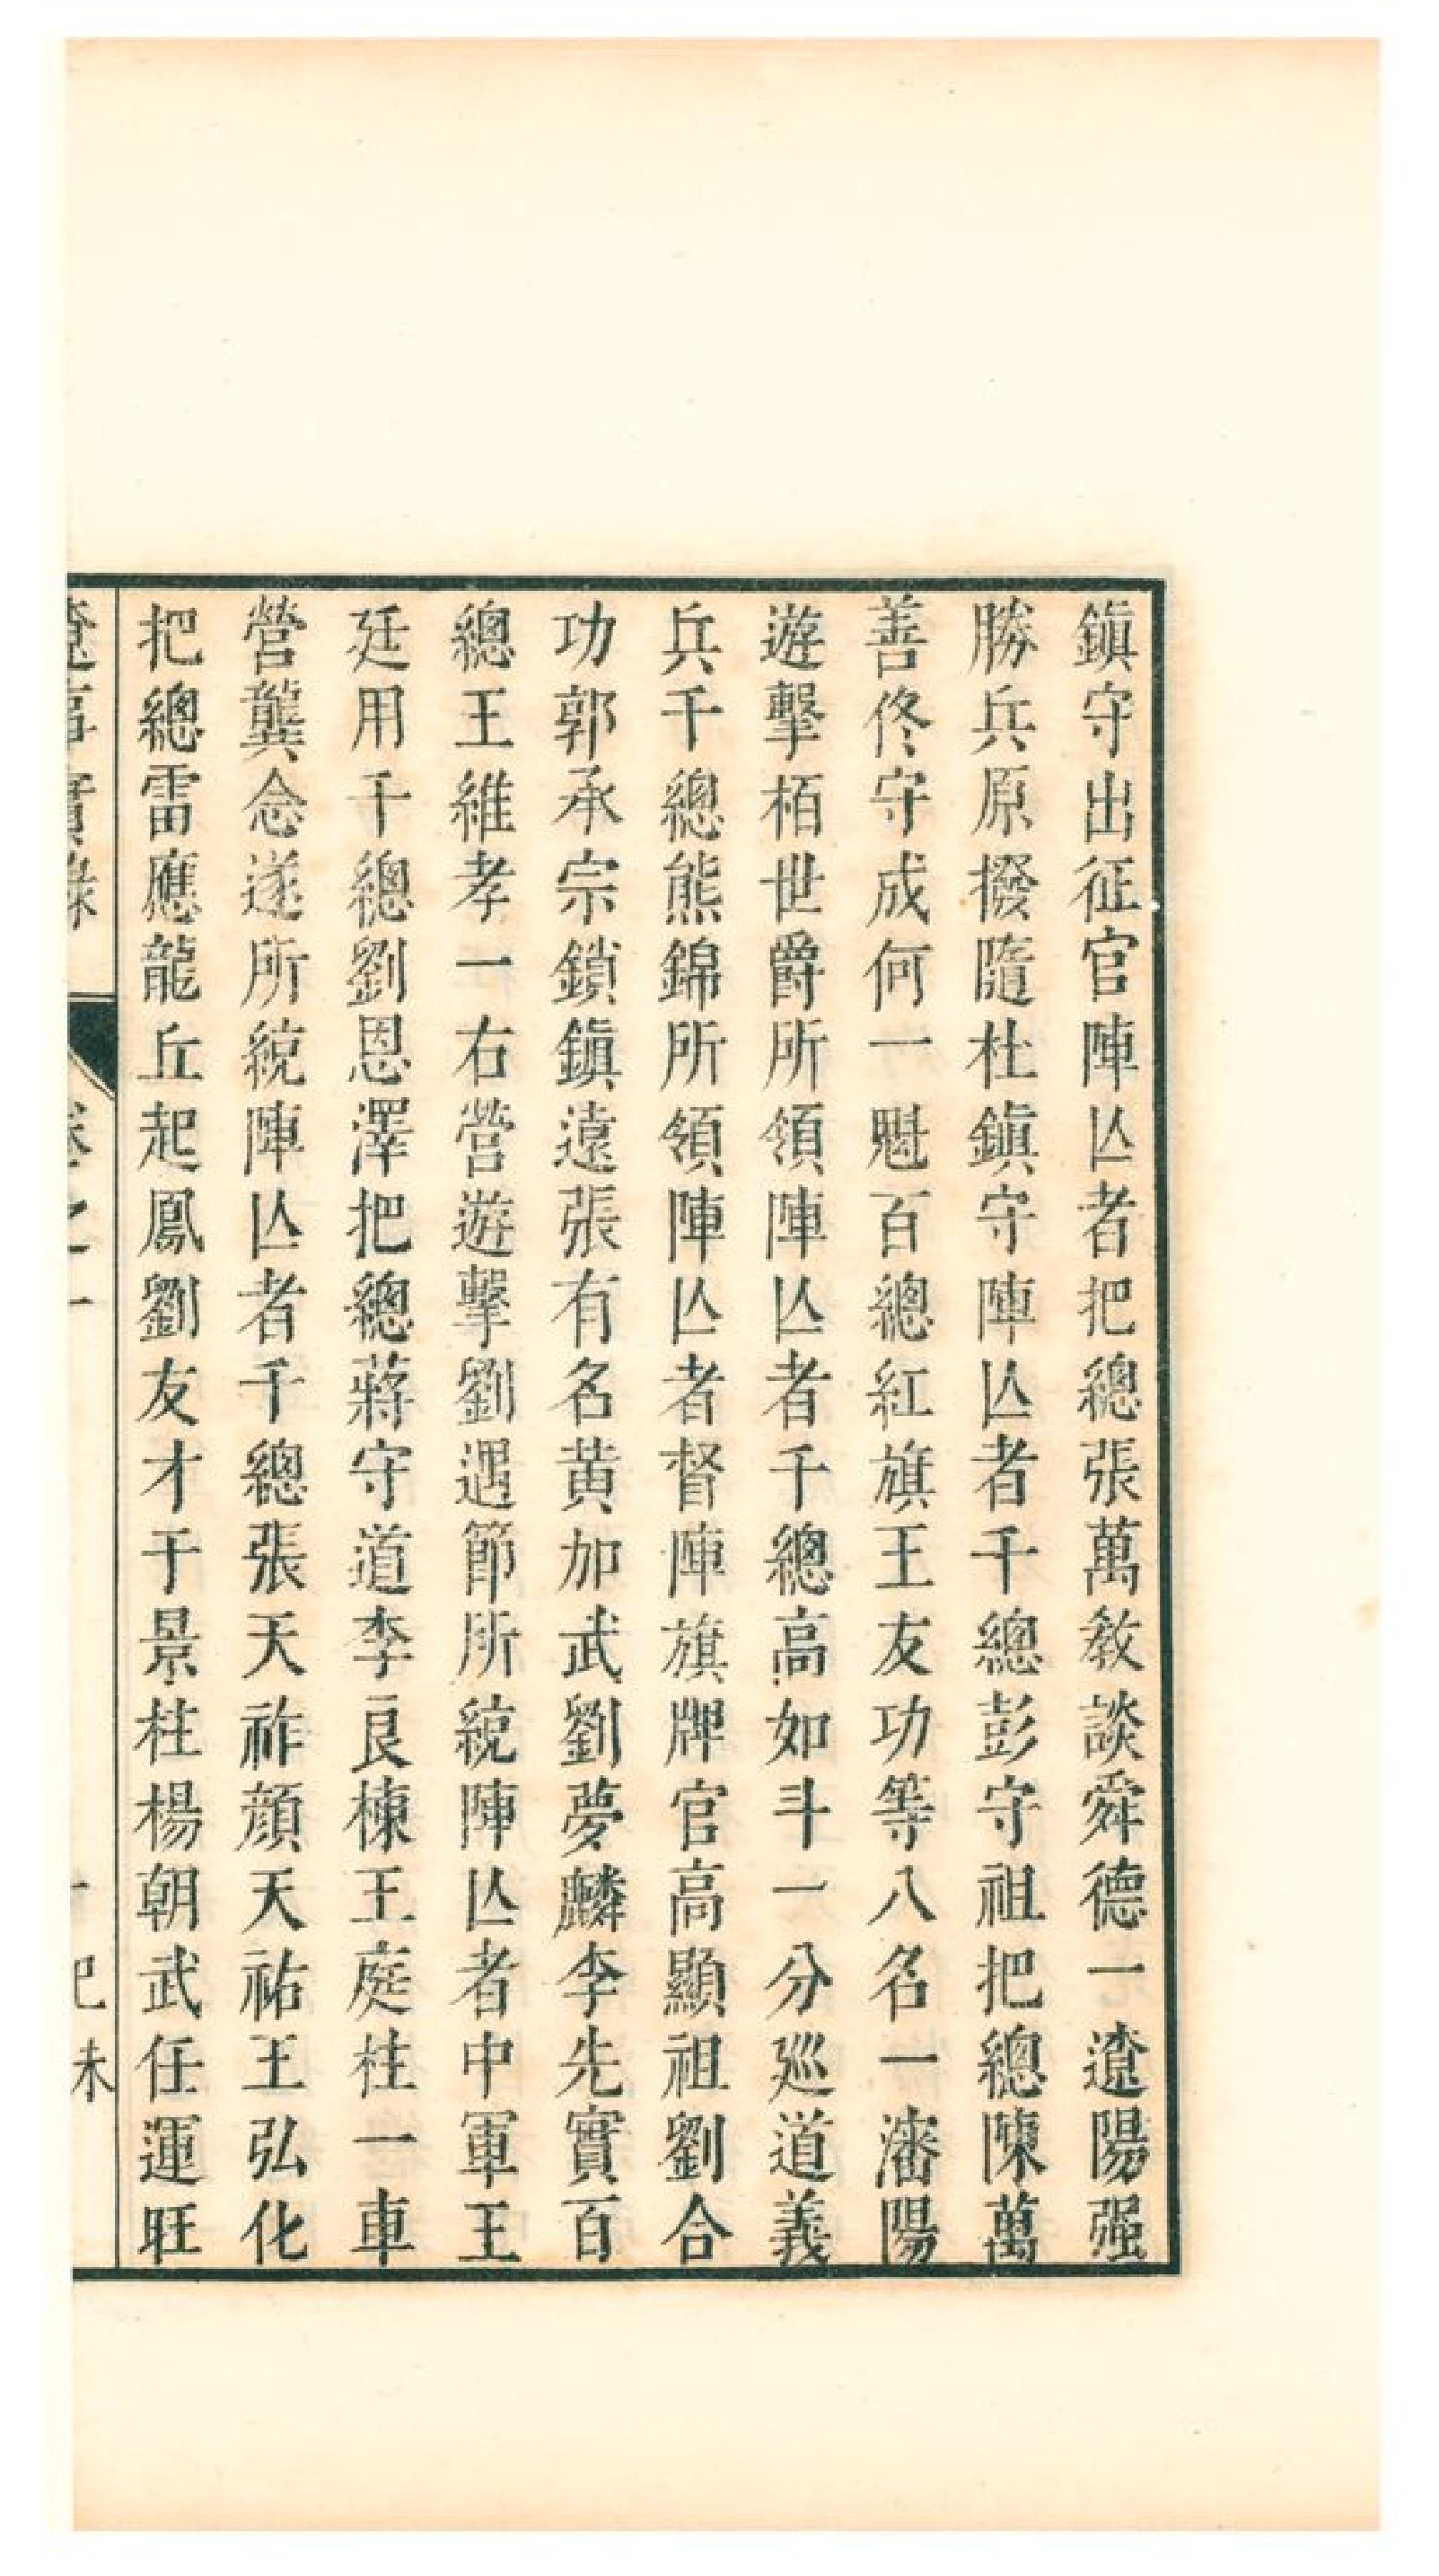 鎮守出征官陣亾者把總張萬教談舜德一遼陽强
勝兵原撥隨杜鎮守陣亾者千總彭守祖把總陳萬
善佟守成何一魁百總紅旗王友功等八名一瀋陽
遊擊栢世爵所領陣亾者千總高如斗一分廵道義
兵千總熊錦所領陣亾者督陣旗牌官高顯祖劉合
功郭承宗鎖鎮遠張有名黄加武劉夢麟李先實百
總王維孝一右營遊擊劉遇節所統陣亾者中軍王
廷用千總劉恩澤把總蔣守道李良棟王庭柱一車
營龔念遂所統陣亾者千總張天祚顔天祐王弘化
把總雷應龍丘起鳳劉友才于景柱楊朝武任運旺
遼事實錄 卷之一 己未